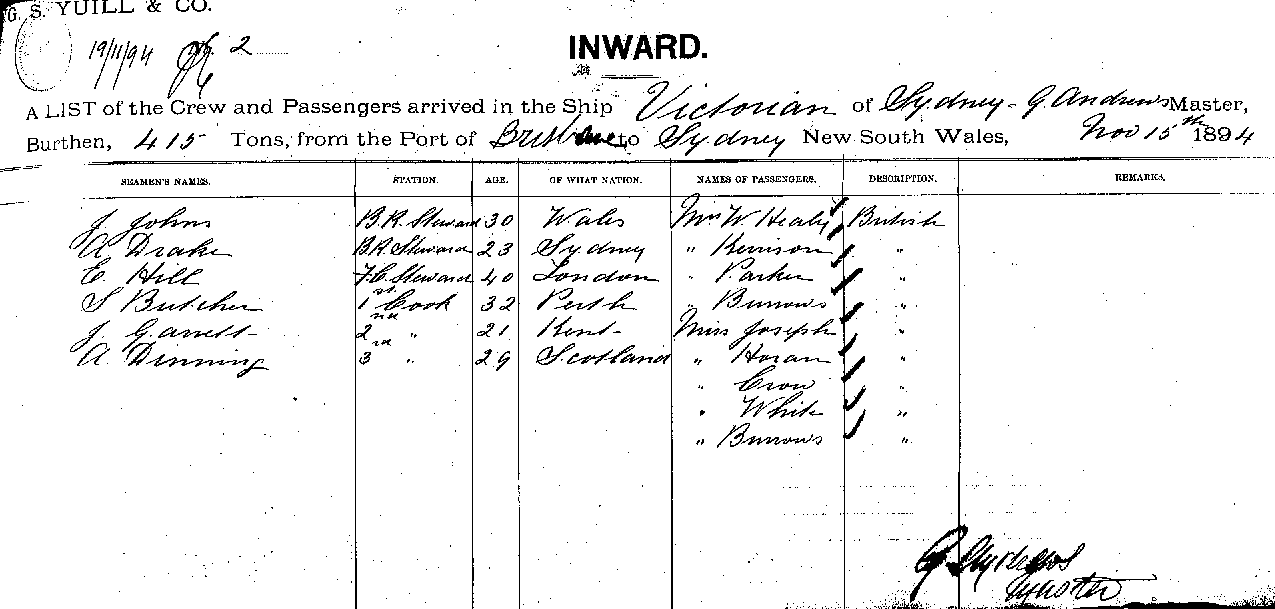 G. S. YUILL & CO.
19/11/94 2
INWARD.
A LIST of the Crew and Passengers arrived in the Ship Victorian of Sydney - G. Andrews Master,
Burthen, 415 Tons, from the Port of Brisbane to Sydney New South Wales, Nov 15th 1894
SEAMEN'S NAMES. STATION. AGE. OF WHAT NATION. NAMES OF PASSENGERS. DESCRIPTION. REMARKS.
J Johns B.R. Steward 30 Wales Mrs W Healy British
A Drake B.R. Steward 23 Sydney " Kenison "
E. Hill F.C. Steward 40 London " Parker "
S Butcher 1st Cook 32 Perth " Burrows "
J Garrett 2nd " 21 Kent Miss Joseph "
A. Dinning 3rd " 29 Scotland " Horan "
" Crow "
" White "
" Burrows "
G Andrews
Master